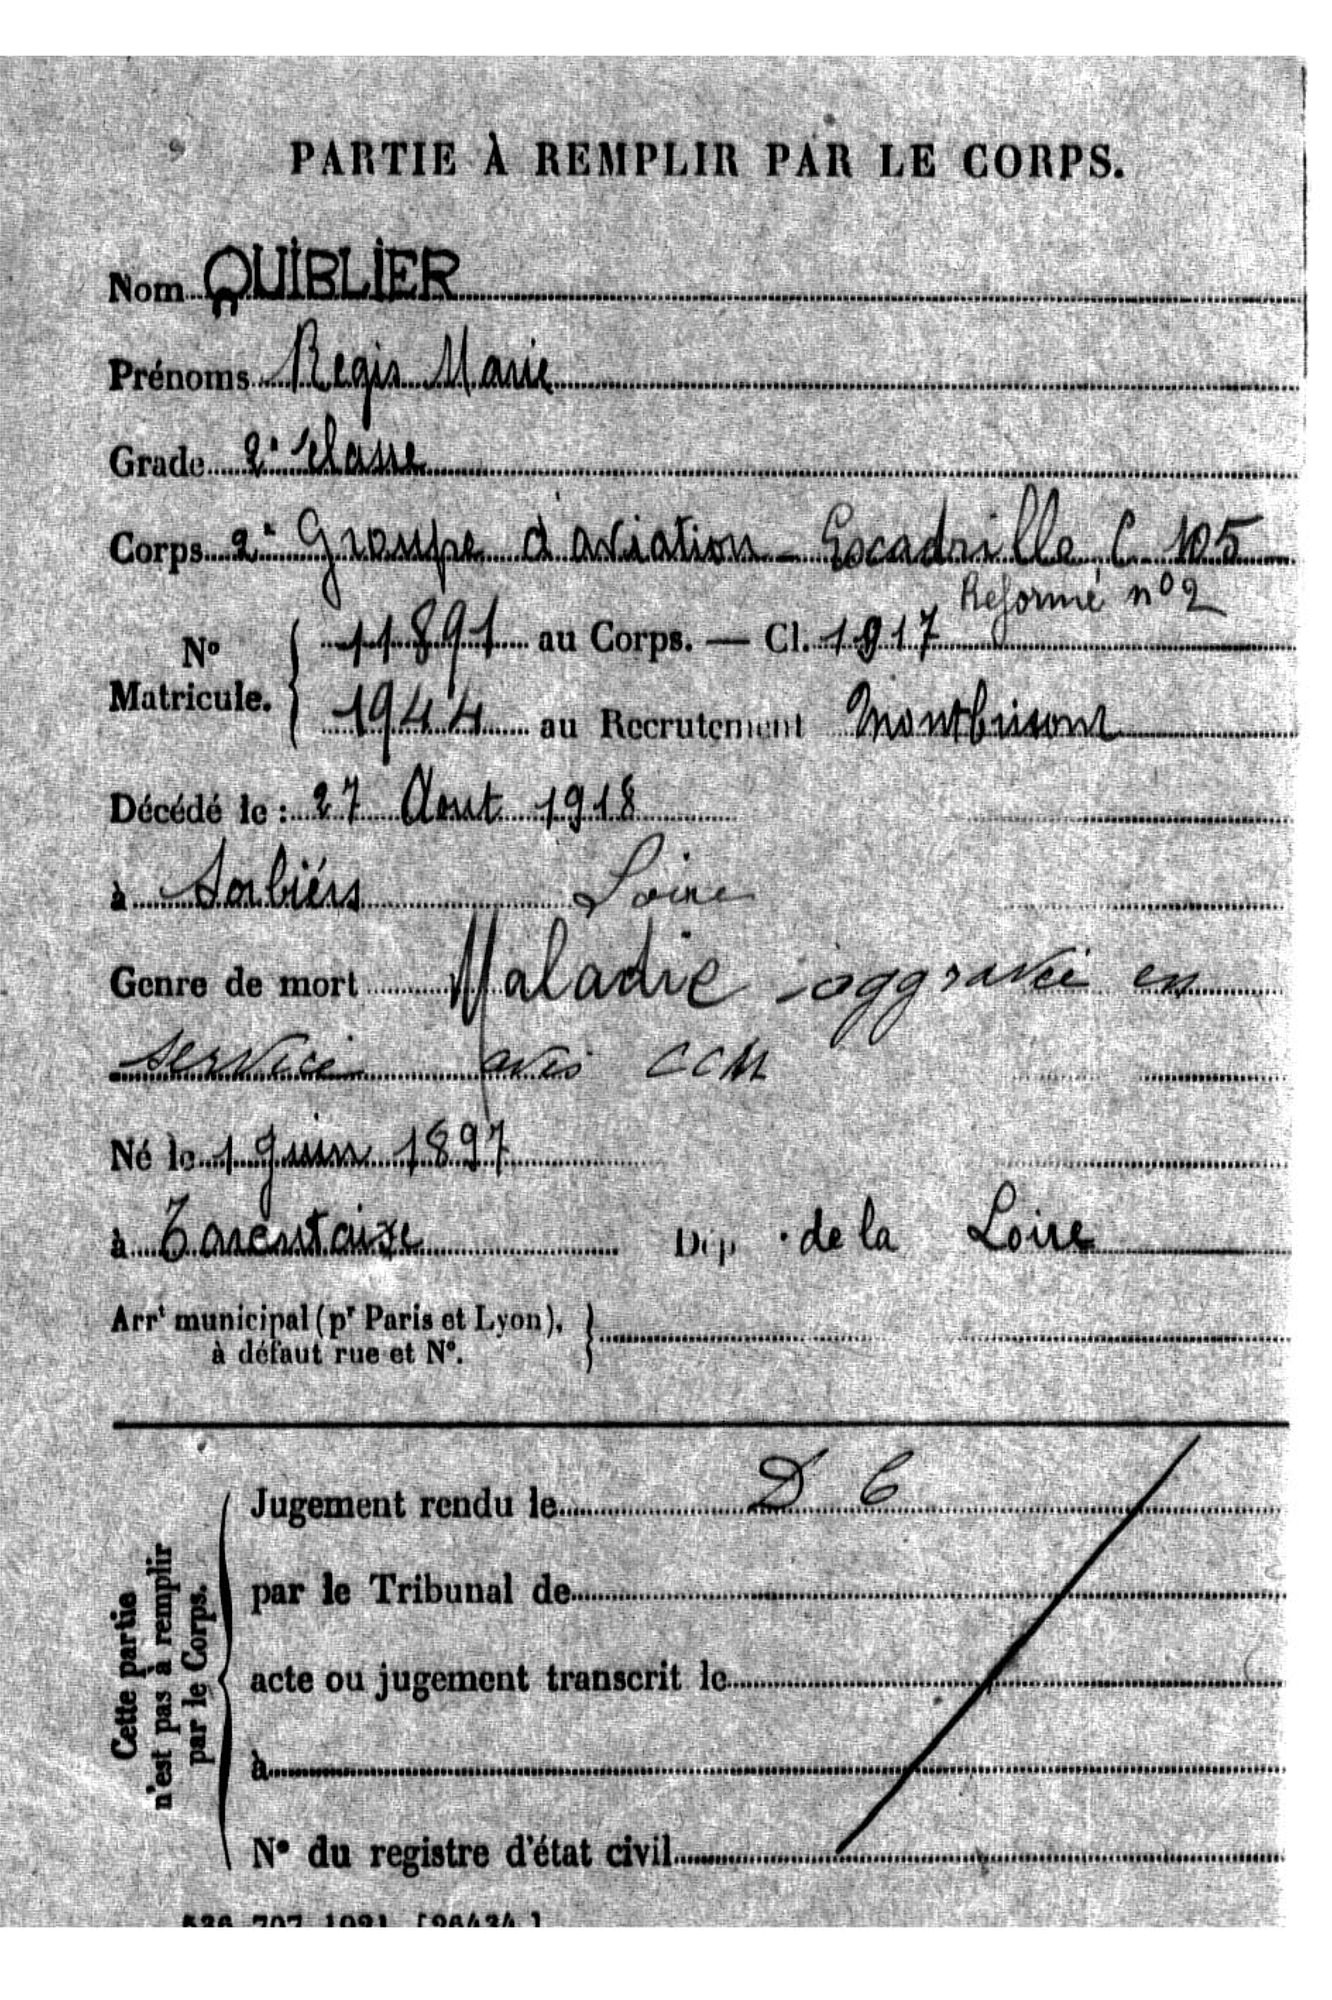 PARTIE À REMPLIR PAR LE CORPS.
Nom QUIBLIER
Prénoms Regis Marie
Grade 2e classe
Corps 2e Groupe d'aviation - Escadrille C 105
Réformé n° 2
N° Matricule. 11891 au Corps. — Cl. 1917
1944 au Recrutement Montbrison
Décédé le : 27 Aout 1918
à Sorbiérs Loire
Genre de mort Maladie aggravée en
service avis CCM
Né le 1 Juin 1897
à Tarentaise Dép. de la Loire
Arrt municipal (pr Paris et Lyon),
à défaut rue et N°.
Jugement rendu le D C
par le Tribunal de
acte ou jugement transcrit le
à
N° du registre d'état civil
Cette partie
n'est pas à remplir
par le Corps.
536-707-1921. [26434.]